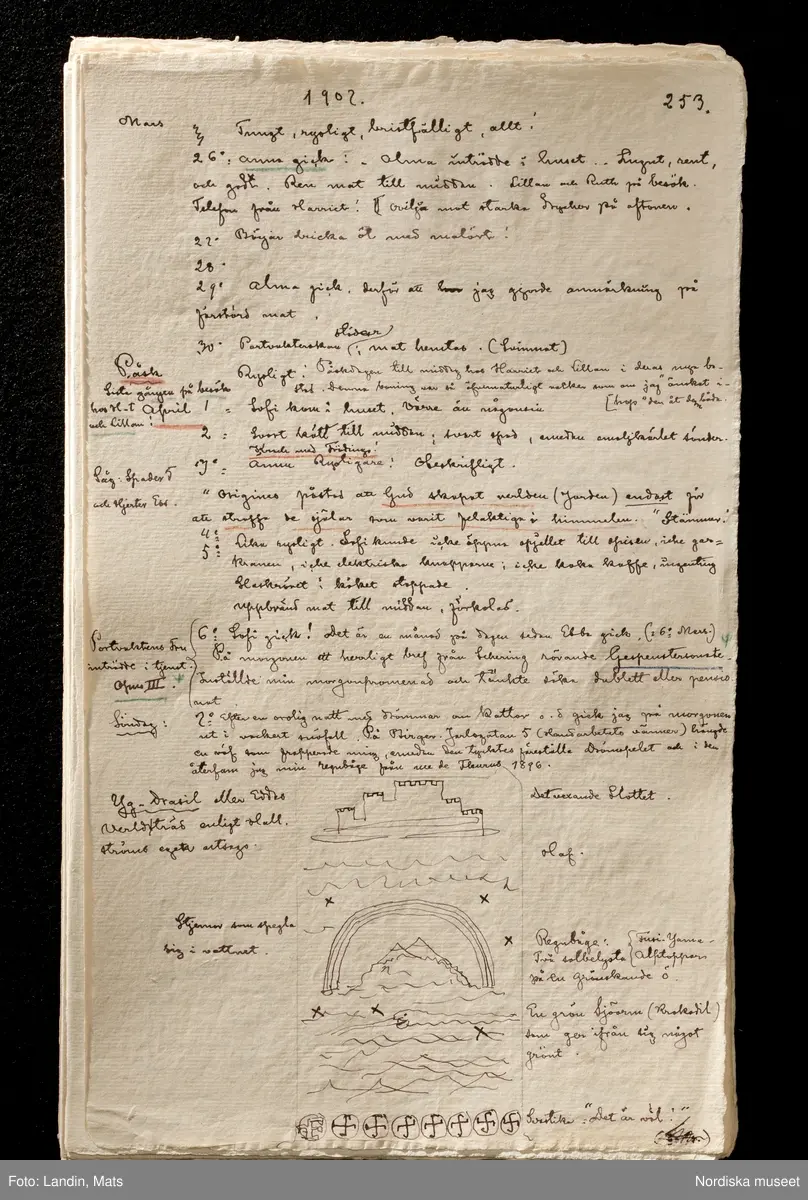 1907.
253.
Mars
Tungt, rysligt, bristfälligt, allt!
26°: Anna gick! - Alma inträdde i huset. - Lugnt, rent,
och godt. Ren mat till middan. Lillan och Ruth på besök.
Telefon från Harriet! Ovilja mot starka drycker på aftonen.
27° Börjar dricka öl med malört!
28°
29° Alma gick, derför att jag gjorde anmärkning på
förstörd mat.
30° Portvakterskan mat hemtas. (Svinmat)
Påsk
Rysligt! Påskdagen till middag hos Harriet och Lillan i deras nya bo-
Sista gången på besök
stad. Denna
som om jag "önskat i-
hos H-t
och Lillan!
April 1 = Sofi kom i huset. Värre än någonsin
2 = Svart kött till middan; svart spad, emedan emaljkärlet sönder.
3° = Ännu Rysligare! Obeskrifligt.
Såg: Spader 5
och Hjerter Ess.
"Origines påstod att Gud skapat verlden (Jorden) endast för
att straffa de själar som varit felaktiga i himmelen. "Stämmer!
4°: Lika rysligt. Sofi kunde icke öppna spjellet till spisen, icke gas=
5°: kranen, icke elektriska knapparne; icke koka kaffe, ingenting
Slaskröret i köket stoppade.
Uppbränd mat till middan, förkolad.
Portvaktens fru
inträdde i tjenst.
Opus III.
6°: Sofi gick! Det är en månad på dagen sedan Ebba gick. (: 6° Mars.)
På morgonen ett herrligt bref från Schering rörande Gespenstersonate.
Inställde min morgonpromenad och tänkte söka dublett eller pensio
nat
Söndag:
7° Efter en orolig natt med drömmar om Kattor o. d gick jag på morgonen
ut i vackert snöfall. På Birger-Jarlsgatan 5 (Handarbetets vänner) hängde
en väf som frapperade mig, emedan den tycktes föreställa Drömspelet och i den
återfann jag min regnbåge från rue de Fleurus 1896.
Yg-Drasil eller Eddas
Verldsträd enligt Hall.
ströms egen utsago.
Det vexande Slottet.
Haf.
Stjernor som spegla
sig i vattnet.
Regnbåge:
Två solbelysta
Fusi-Yama-
Alptoppar
på en grönskande ö.
En grön Sjöorm (Krokodil)
som ger ifrån sig något
grönt.
Svastika = "Det är väl!"
Foto: Landin, Mats
Nordiska museet